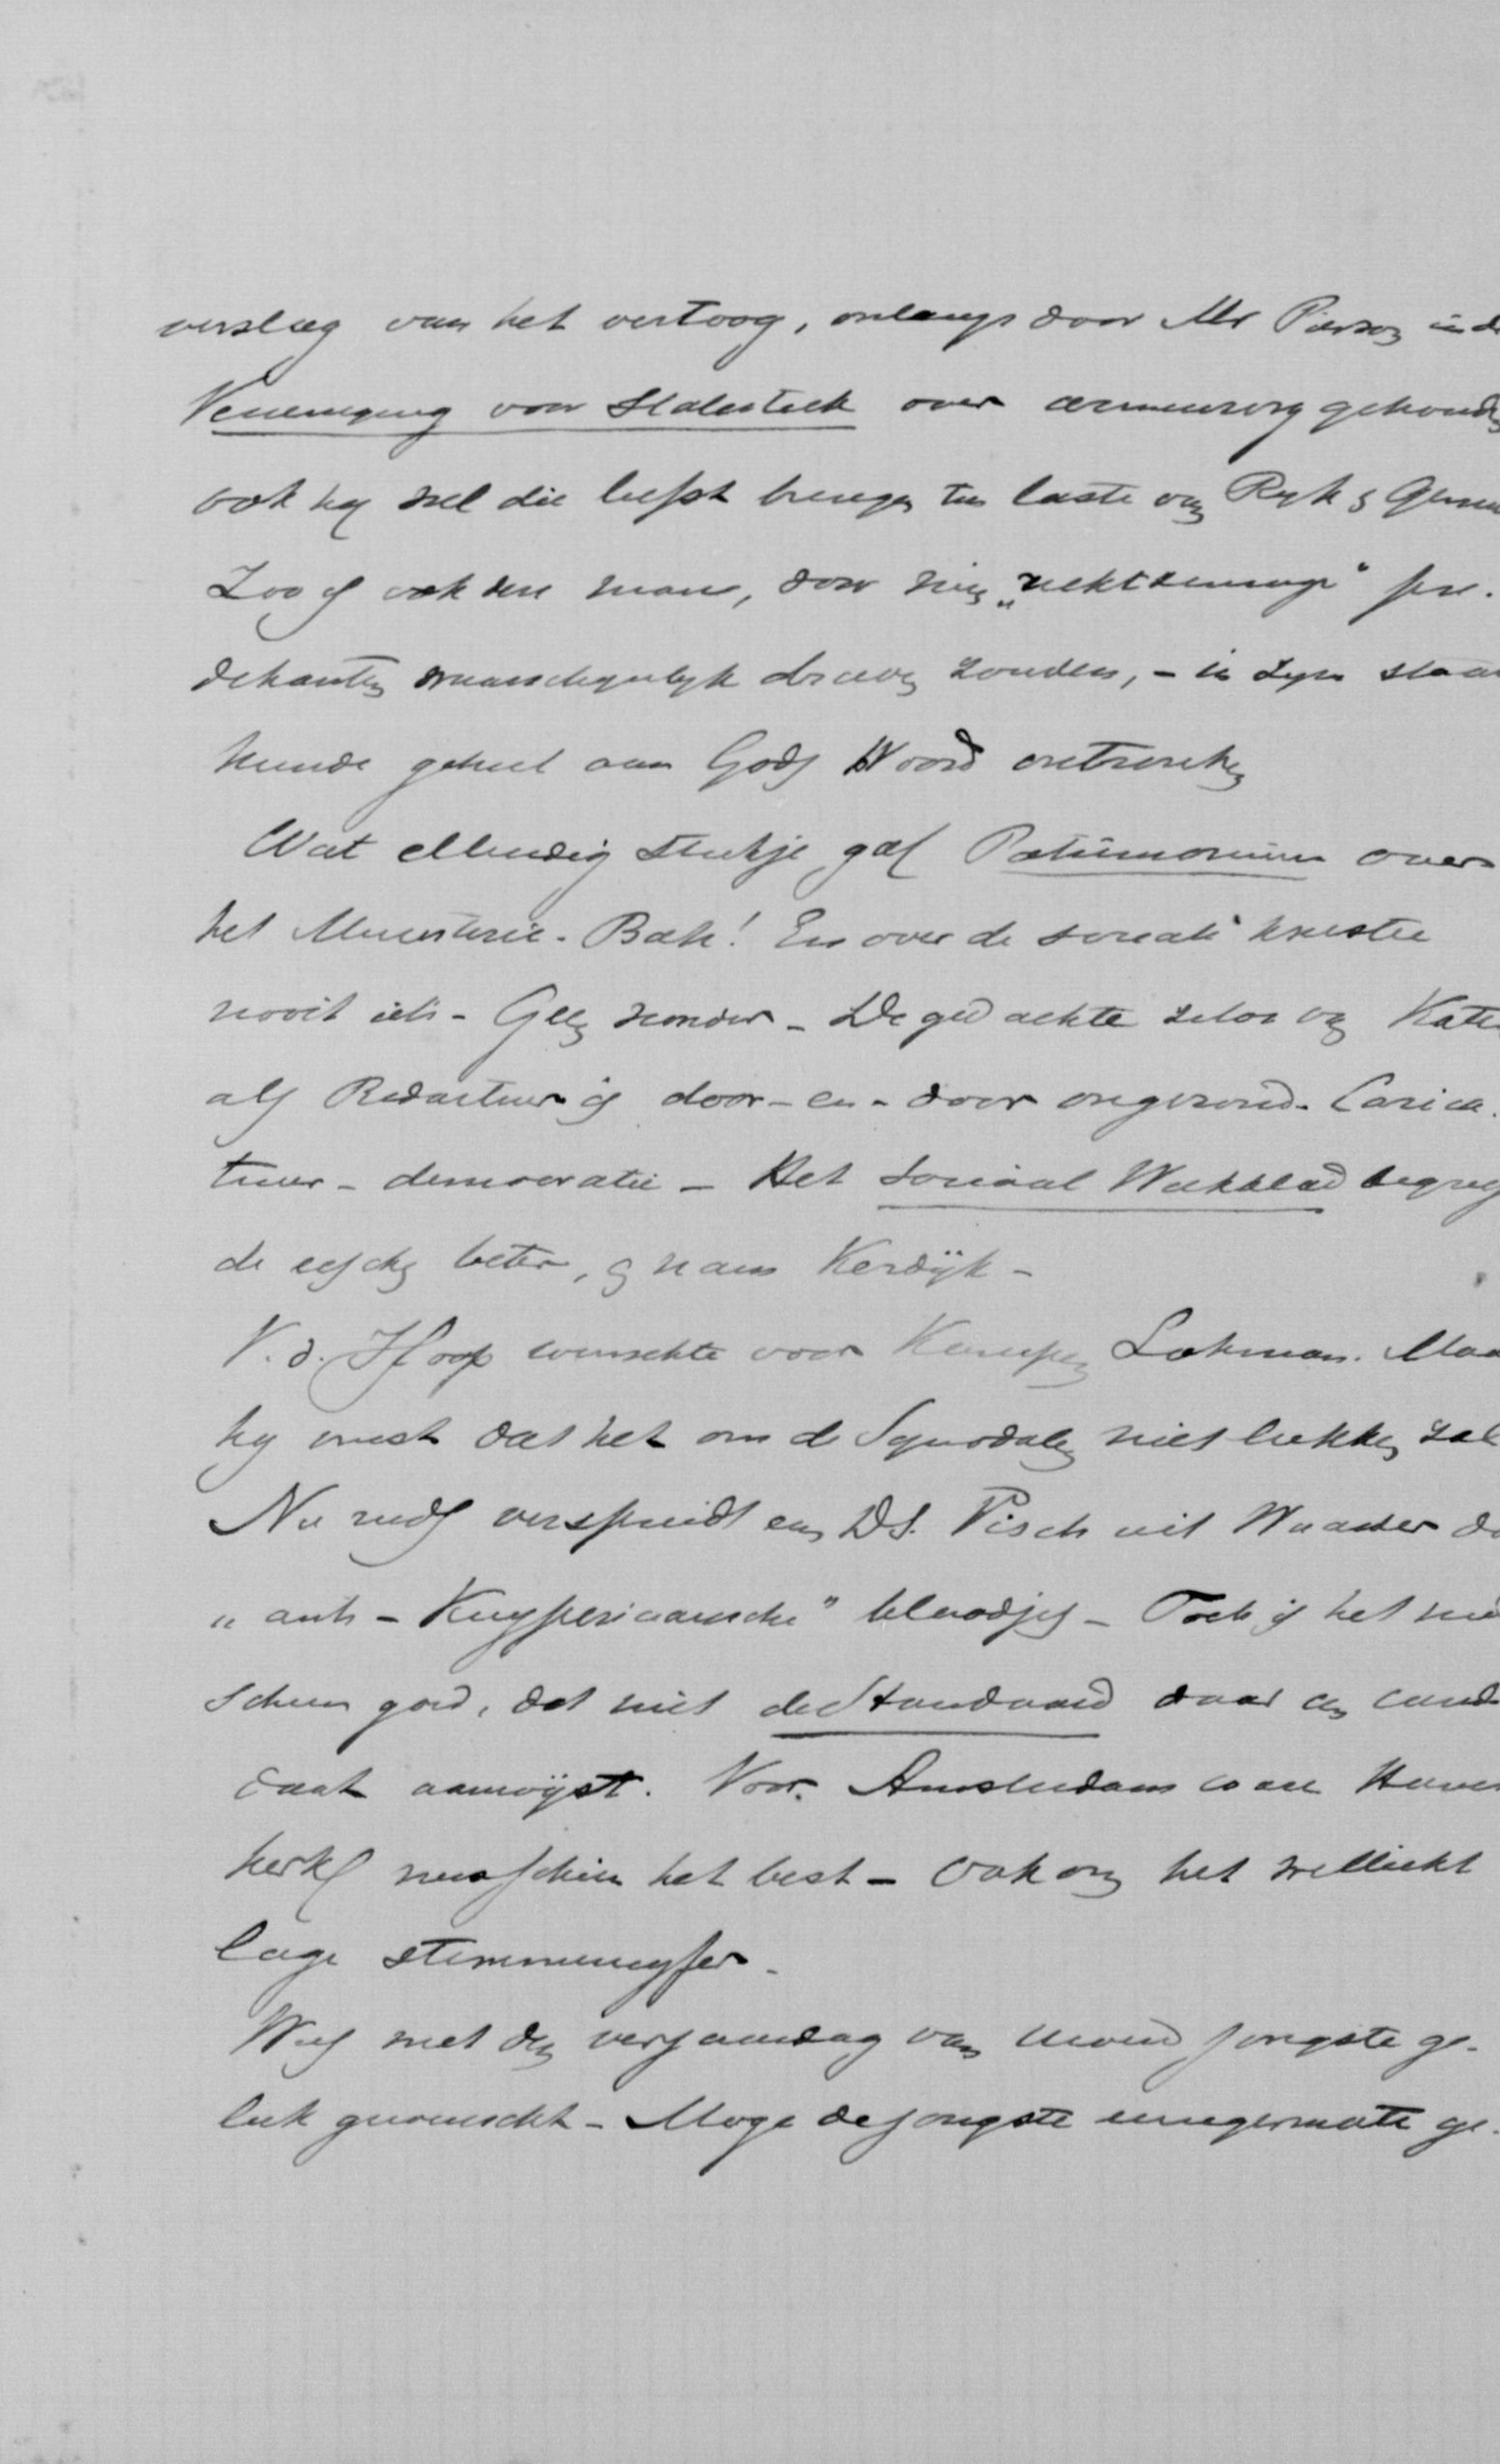 verslag van het vertoog, onlangs door Mr Pierson in d
Vereeniging voor Statistiek over armenzorg gehoud
ook hy wil die liefst brengen ten laste van Ryk & Gemee
Zoo is ook deze man, door zijn „rechtzinnige" pre-
dikanten waarschynlyk dazen zouden, - in zyn staa
kunde geheel aan Gods Woord onttrokken
Wat ellendig stukje gaf Patrimonium over
het Ministerie. Bah! En over de sociale kwestie
nooit iets - Geen wonder - De gedachte zelve van Kater
als Redacteur is door-en-door ongezond. Carica-
tuur-democratie - Het Sociaal Weekblad begreep
de eischen beter, & nam Kerdijk -
V. d. Hoop wenschte voor Kampen Lohman. Maa
hy vreest dat het om de Synodalen niet lukken zal
Nu reeds verspreidt een Ds. Visch uit Waarder d
„anti-Kuyperiaansche" blaadjes - Toch is het mis
schien goed, dat niet de Standaard daar een candi
daat aanwijst. Voor Amsterdam ware Heems
kerk misschien het best - ook om het wellicht
lage stemmencyfer -
Wees met den verjaardag van Uwen jongste ge-
luk gewenscht - Moge de jongste eenigermate ge-